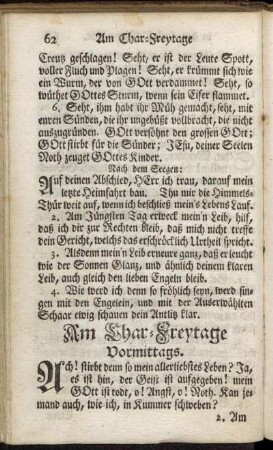 62 Am Char-Freytage
Creutz geschlagen! Seht, er ist der Leute Spott,
voller Fluch und Plagen! Seht, er krümmt sich wie
ein Wurm, der von GOtt verdammet! Seht, so
wüthet GOttes Sturm, wenn sein Eifer flammet.
6. Seht, ihn habt ihr Müh gemacht, seht, mit
euren Sünden, die ihr ungebüßt vollbracht, die nicht
auszugründen. GOtt versöhnt den grossen GOtt;
GOtt stirbt für die Sünder; JEsu, deiner Seelen
Noth zeugt GOttes Kinder.
Nach dem Seegen:
Auf deinen Abschied, HErr ich trau, darauf mein
letzte Heimfahrt bau. Thu mir die Himmels-
Thür weit auf, wenn ich beschließ mein's Lebens Lauf.
2. Am Jüngsten Tag erweck mein'n Leib, hilf,
daß ich dir zur Rechten bleib, daß mich nicht treffe
dein Gericht, welchs das erschröcklich Urtheil spricht.
3. Alsdenn mein'n Leib erneure ganz, daß er leucht
wie der Sonnen Glanz, und ähnlich deinem klaren
Leib, auch gleich den lieben Engeln bleib.
4. Wie werd ich denn so fröhlich seyn, werd sin-
gen mit den Engelein, und mit der Auserwählten
Schaar ewig schauen dein Antlitz klar.
Am Char-Freytage
Vormittags.
Ach! stirbt denn so mein allerliebstes Leben? Ja,
es ist hin, der Geist ist aufgegeben! mein
GOtt ist todt, o! Angst, o! Noth. Kan je-
mand auch, wie ich, in Kummer schweben?
2. Am